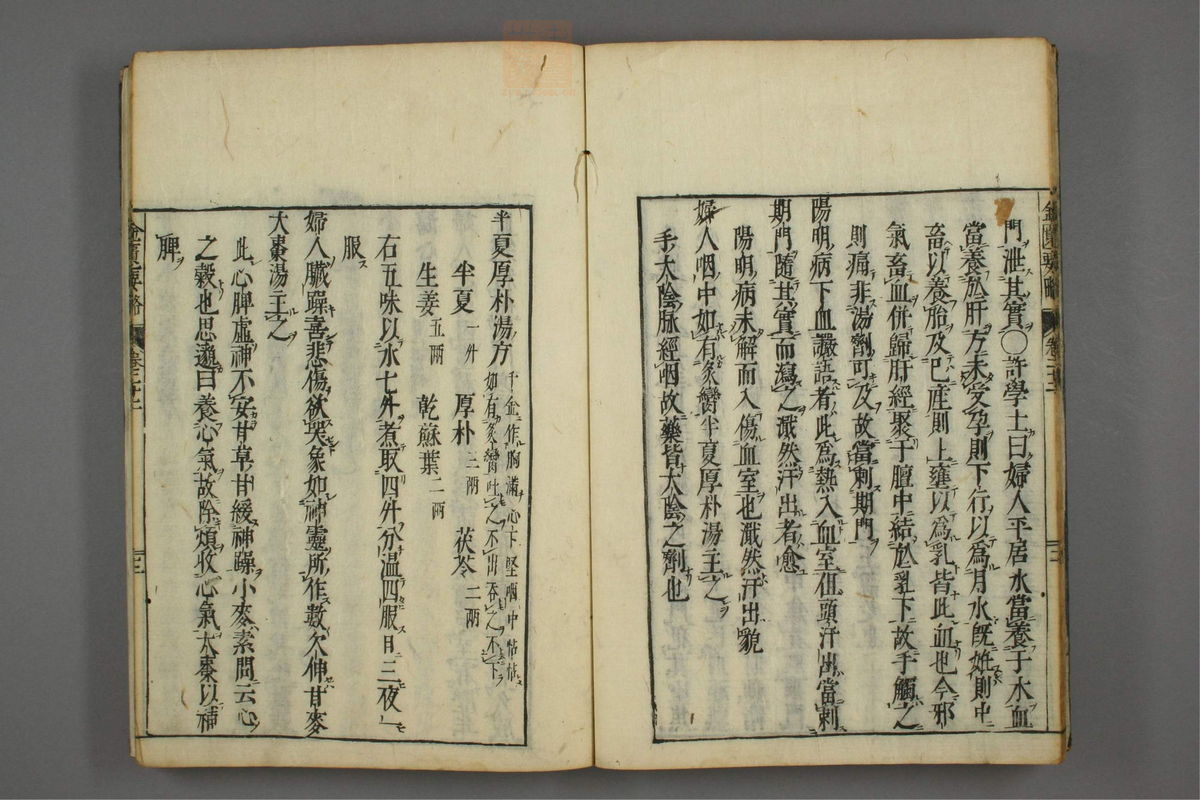 門泄其實○許學士曰婦人平居水當養于木血
當養於肝方未受孕則下行以為月水既妊則中
畜以養胎及已産則上壅以為乳皆此血也今邪
氣畜血併歸肝經聚于膻中結於乳下故手觸之
則痛非湯劑可及故當刺期門
陽明病下血譫語者此為熱入血室但頭汗出當刺
期門隨其實而瀉之濈然汗出者愈
陽明病未解而入傷血室也濈然汗出貌
婦人咽中如有炙臠半夏厚朴湯主之
手太陰脉經咽故藥皆太陰之劑也
金匱要略
卷二十二
三
半夏厚朴湯方
千金作胸滿心下堅咽中帖帖
如有炙臠吐之不出吞之不下
半夏一升 厚朴三兩 茯苓二兩
生姜五兩 乾蘇葉二兩
右五味以水七升煮取四升分温四服日三夜一
服
婦人臓躁喜悲傷欲哭象如神靈所作數欠伸甘麥
大棗湯主之
此心脾虚神不安甘草甘緩神躁小麥素問云心
之穀也思邈曰養心氣故除煩收心氣大棗以補
脾
金匱要略
卷二十二
三